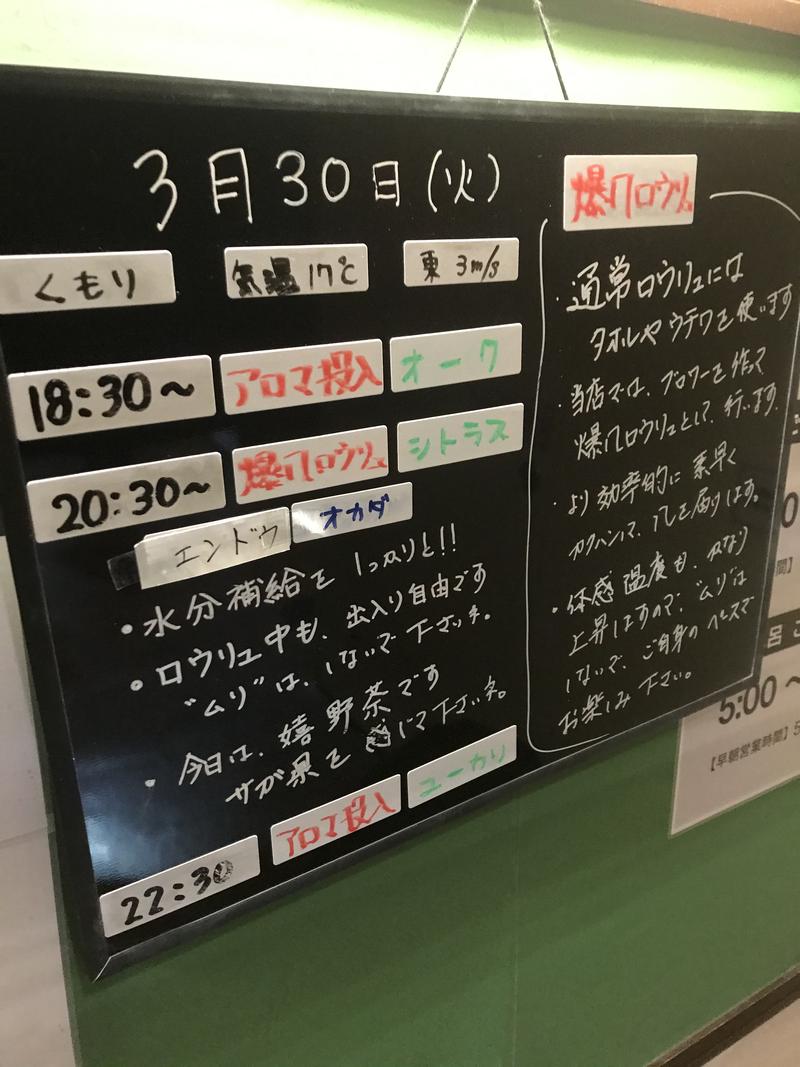 3月30日(火)
くもり 気温 17℃ 東 3m/s
18:30～ アロマ投入 オーク
20:30～ 爆べロウリュ シトラス
エンドウ オカダ
・水分補給を しっかりと!!
・ロウリュ中も、出入り自由です
"ムリ"は、しないで下さいネ。
・今日は、嬉野茶です
サガ県を感じて下さいネ。
22:30 アロマ投入 ユーカリ
爆ロウリュ
・通常ロウリュには
タオルや ウチワを使います
・当店では、ブロワーを使って
爆ロウリュとして、行います。
・より効率的に 素早く
カクハンして、アレを届けます。
・体感温度も、かなり
上昇しますので、"ムリ"は
しないで、ご自身のペースで
お楽しみ下さい。
5:00～
【早朝営業時間】5